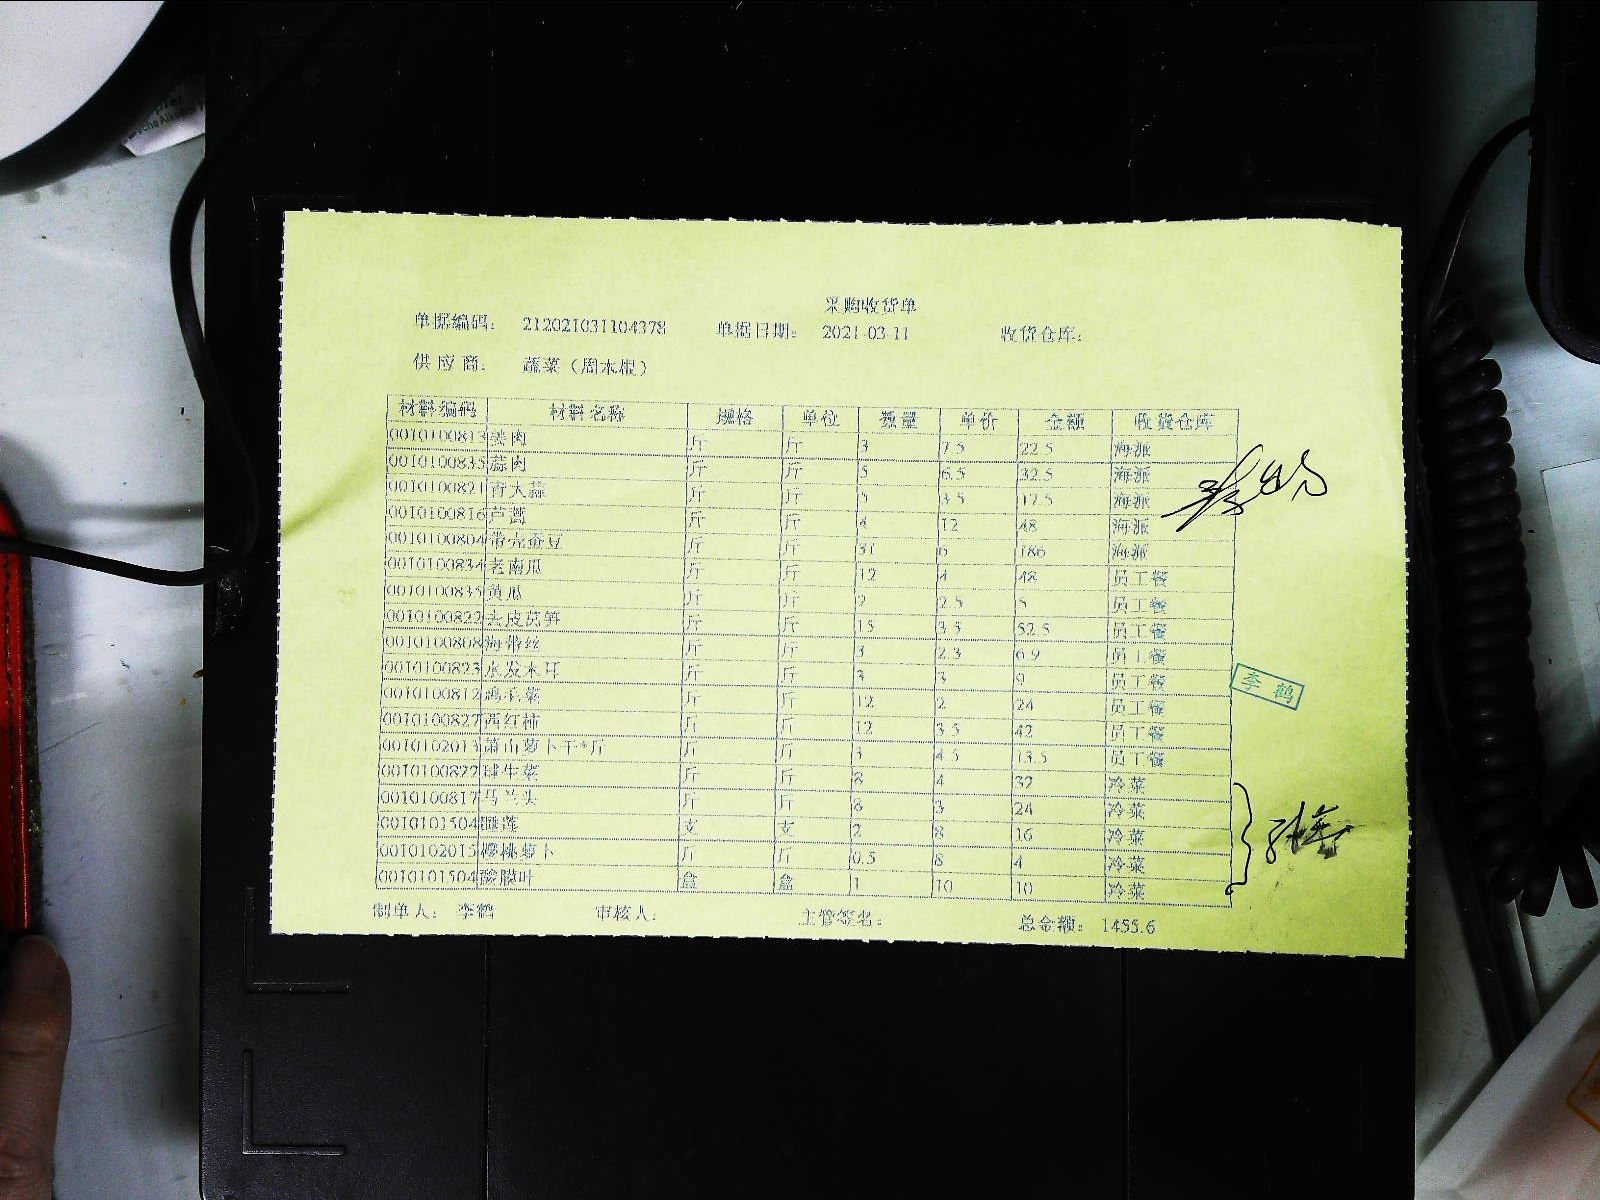 采购收货单
单据编码： 212021031104378 单据日期： 2021-03-11 收货仓库：
供应商： 蔬菜（周木根）
材料编码 材料名称 规格 单位 数量 单价 金额 收货仓库
0010100813 姜肉 斤 斤 3 7.5 22.5 海派
0010100835 蒜肉 斤 斤 5 6.5 32.5 海派
0010100821 青大蒜 斤 斤 5 3.5 17.5 海派
0010100816 芦蒿 斤 斤 4 12 48 海派
0010100804 带壳蚕豆 斤 斤 31 6 186 海派
0010100834 老南瓜 斤 斤 12 4 48 员工餐
0010100835 黄瓜 斤 斤 2 2.5 5 员工餐
0010100822 去皮莴笋 斤 斤 15 3.5 52.5 员工餐
0010100808 海带丝 斤 斤 3 2.3 6.9 员工餐
0010100823 水发木耳 斤 斤 3 3 9 员工餐
0010100812 鸡毛菜 斤 斤 12 2 24 员工餐
0010100827 西红柿 斤 斤 12 3.5 42 员工餐
0010102013 萧山萝卜干*斤 斤 斤 3 4.5 13.5 员工餐
0010100822 球生菜 斤 斤 8 4 32 冷菜
0010100817 马兰头 斤 斤 8 3 24 冷菜
0010101504 睡莲 支 支 2 8 16 冷菜
0010102015 樱桃萝卜 斤 斤 0.5 8 4 冷菜
0010101504 酸膜叶 盒 盒 1 10 10 冷菜
李鹤
制单人： 李鹤 审核人： 主管签名： 总金额： 1455.6